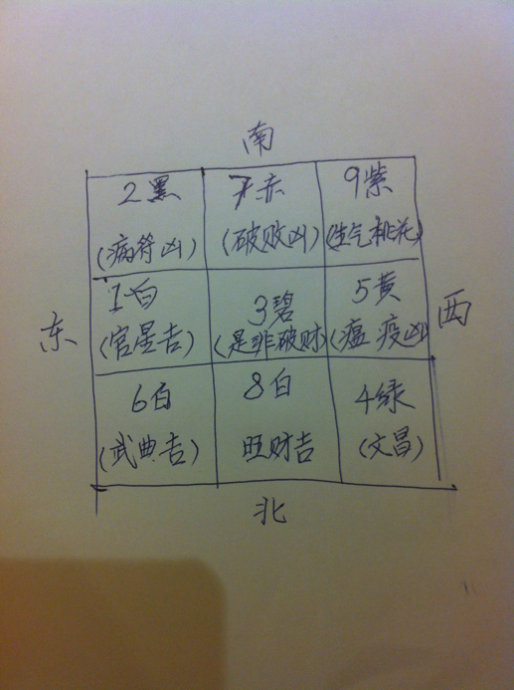 南
2黑 7赤 9紫
(病符凶) (破败凶) (生气桃花)
东 1白 3碧 5黄 西
(官星吉) (是非破财) (瘟疫凶)
6白 8白 4绿
(武典吉) 旺财吉 (文昌)
北